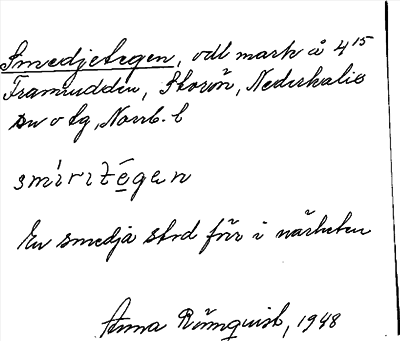 Smedjetegen, odl mark å 4¹⁵
Framrudden, Storön, Nederkalix
sn o tg, Norrb. l
smìrıtégan
En smedja stod förr i närheten
Anna Römquist, 1948